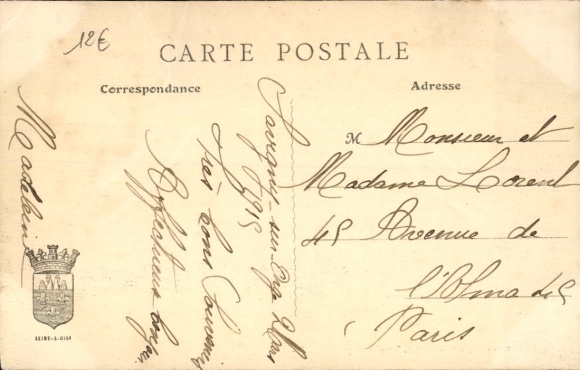 12€
CARTE POSTALE
Correspondance
Adresse
Savigny sur Orge 2 Mars
1915
Très bons Souvenirs
Affectueux
Madeleine
M Monsieur et
Madame Lorent
45 Avenue de
l'Alma 45
Paris
SEINE-&-OISE